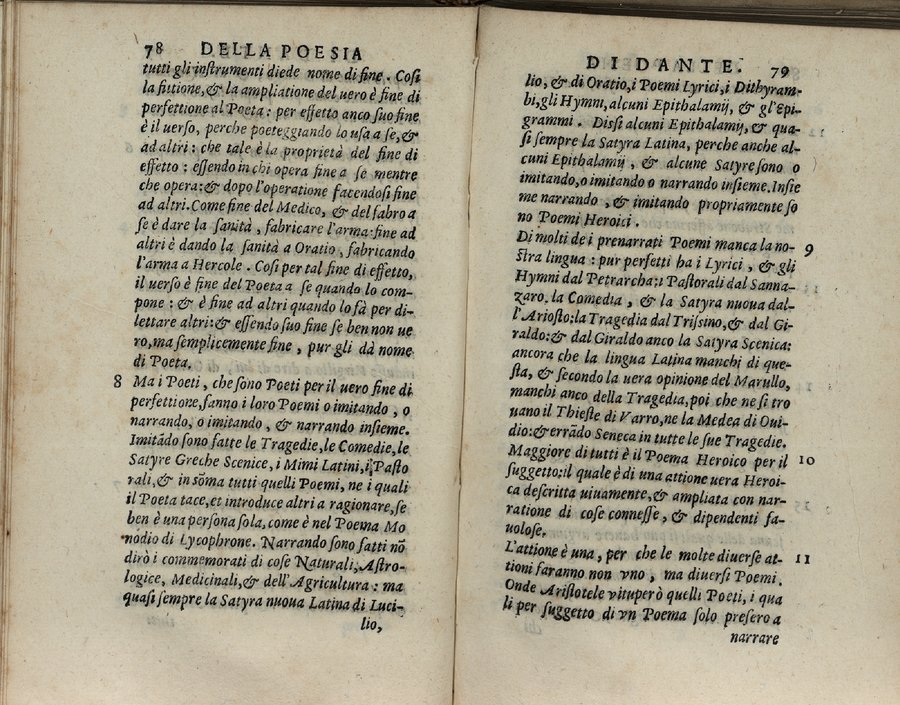 78 DELLA POESIA
tutti gli inſtrumenti diede nome di fine. Coſi
la fittione, & la ampliatione del uero è fine di
perfettione al Poeta: per effetto anco ſuo fine
è il uerſo, perche poeteggiando lo uſa a ſe, &
ad altri: che tale è la proprietà del fine di
effetto: eſſendo in chi opera fine a ſe mentre
che opera: & dopo l'operatione facendoſi fine
ad altri. Come fine del Medico, & del fabro a
ſe è dare la ſanità, fabricare l'arma: fine ad
altri è dando la ſanità a Oratio, fabricando
l'arma a Hercole. Coſi per tal fine di effetto,
il uerſo è fine del Poeta a ſe quando lo com-
pone: & è fine ad altri quando lo fà per di-
lettare altri: & eſſendo ſuo fine ſe ben non ue
ro, ma ſemplicemente fine, pur gli dà nome
di Poeta.
8 Ma i Poeti, che ſono Poeti per il uero fine di
perfettione, fanno i loro Poemi o imitando, o
narrando, o imitando, & narrando inſieme.
Imitādo ſono fatte le Tragedie, le Comedie, le
Satyre Greche Scenice, i Mimi Latini, i Paſto
rali, & in sōma tutti quelli Poemi, ne i quali
il Poeta tace, et introduce altri a ragionare, ſe
ben è una perſona ſola, come è nel Poema Mo
nodio di Lycophrone. Narrando ſono fatti nō
dirò i commemorati di coſe Naturali, Aſtro-
logice, Medicinali, & dell'Agricultura: ma
quaſi ſempre la Satyra nuoua Latina di Luci-
lio,
DI DANTE. 79
lio, & di Oratio, i Poemi Lyrici, i Dithyram-
bi, gli Hymni, alcuni Epithalamij, & gl'Epi-
grammi. Diſſi alcuni Epithalamij, & qua-
ſi ſempre la Satyra Latina, perche anche al-
cuni Epithalamij, & alcune Satyre ſono o
imitando, o imitando o narrando inſieme. Inſie
me narrando, & imitando propriamente ſo
no Poemi Heroici.
Di molti de i prenarrati Poemi manca la no- 9
ſtra lingua: pur perfetti ha i Lyrici, & gli
Hymni dal Petrarcha: i Paſtorali dal Sanna-
zaro, la Comedia, & la Satyra nuoua dal-
l'Arioſto: la Tragedia dal Triſsino, & dal Gi-
raldo: & dal Giraldo anco la Satyra Scenica:
ancora che la lingua Latina manchi di que-
ſta, & ſecondo la uera opinione del Marullo,
manchi anco della Tragedia, poi che ne ſi tro
uano il Thieſte di Varro, ne la Medea di Oui-
dio: & errādo Seneca in tutte le ſue Tragedie.
Maggiore di tutti è il Poema Heroico per il 10
ſuggetto: il quale è di una attione uera Heroi-
ca deſcritta uiuamente, & ampliata con nar-
ratione di coſe conneſſe, & dipendenti fa-
uoloſe.
L'attione è una, per che le molte diuerſe at- 11
tioni faranno non vno, ma diuerſi Poemi.
Onde Ariſtotele vituperò quelli Poeti, i qua
li per ſuggetto di vn Poema ſolo preſero a
narrare